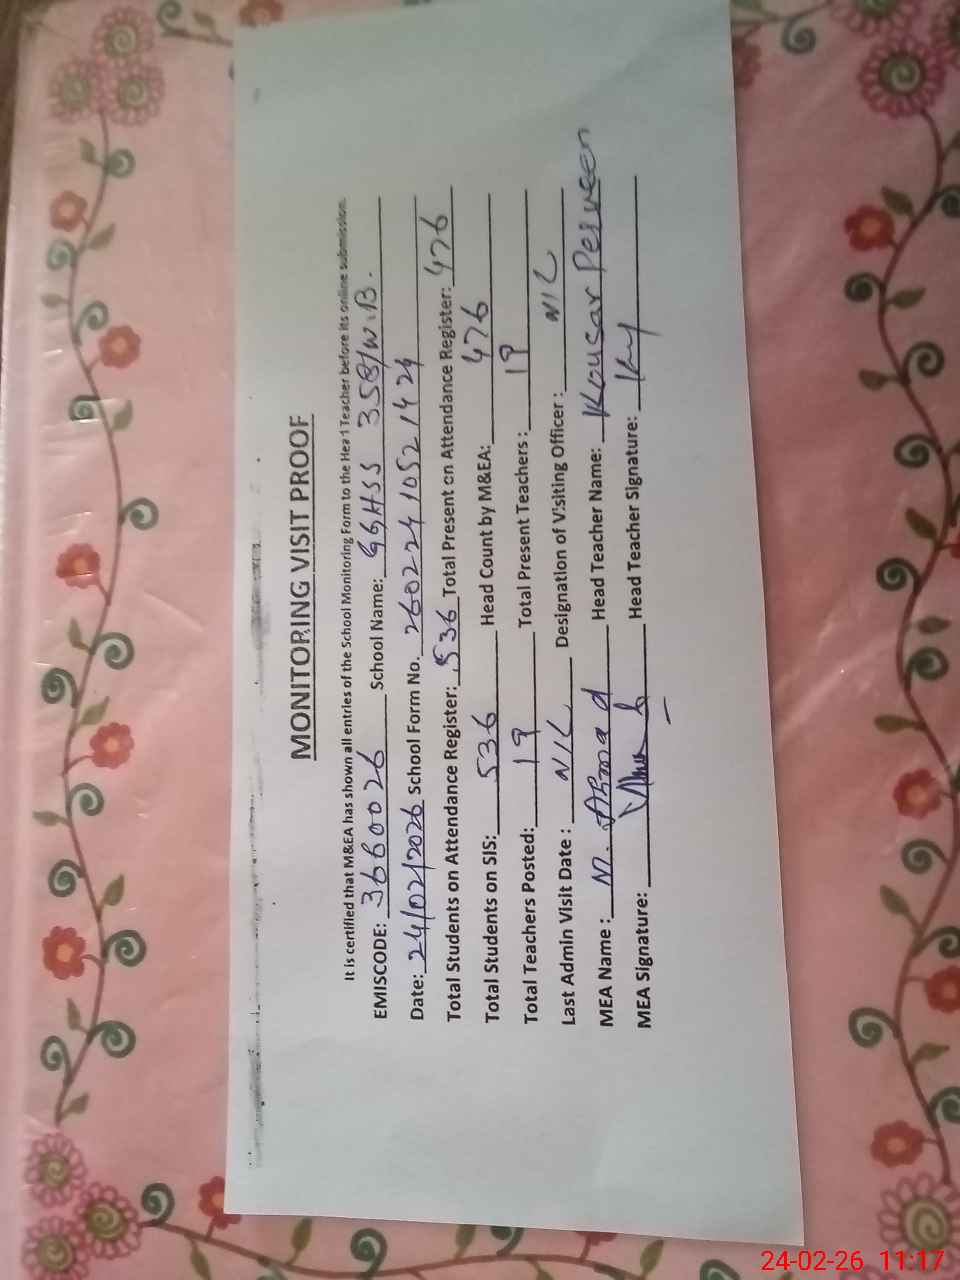 MONITORING VISIT PROOF
It is certified that M&EA has shown all entries of the School Monitoring Form to the Head Teacher before its online submission.
EMISCODE: 3660026 School Name: GGHSS 358/W.B.
Date: 24/02/2026 School Form No. 26022410521424
Total Students on Attendance Register: 536 Total Present on Attendance Register: 476
Total Students on SIS: 536 Head Count by M&EA: 476
Total Teachers Posted: 19 Total Present Teachers: 19
Last Admin Visit Date: NIL Designation of Visiting Officer: NIL
MEA Name: M. Ahmad Head Teacher Name: Kousar Perveen
MEA Signature: Head Teacher Signature:
24-02-26 11:17